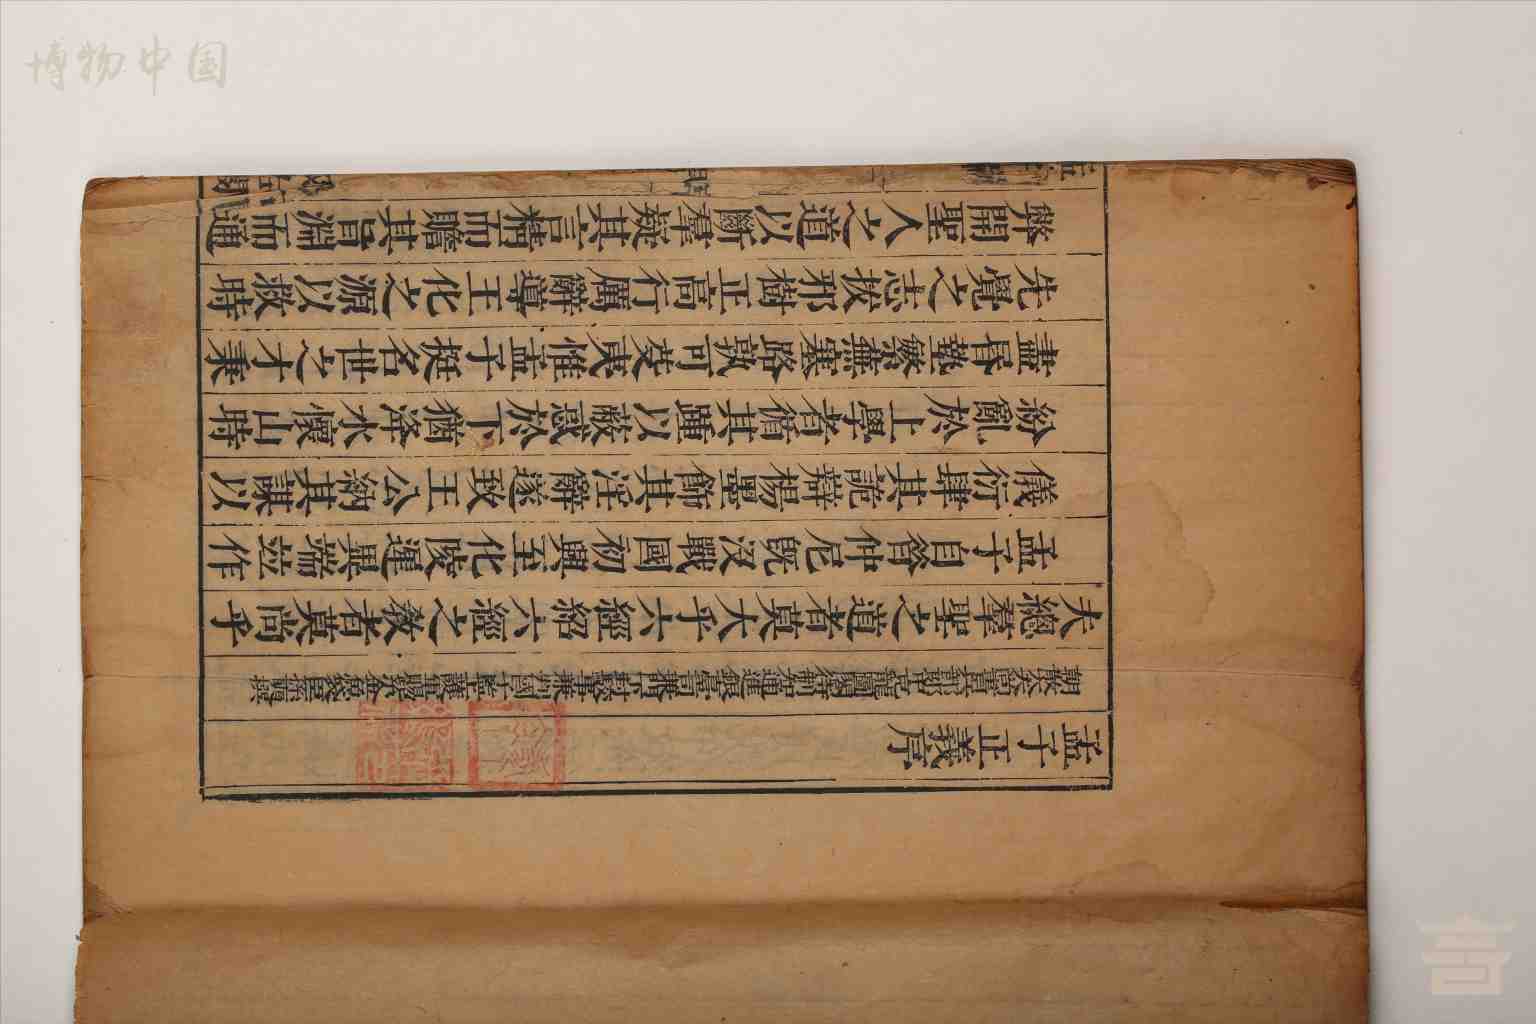 博物中国
孟子正義序
朝散大夫尚書兵部郎中充龍圖閣待制知通進銀臺司兼門下封駮事兼判國子監上護軍賜紫金魚袋臣孫奭撰
夫總羣聖之道者莫大乎六經紹六經之教者莫尚乎
孟子自昔仲尼既沒戰國初興至化陵遲異端並作
儀衍肆其詭辯楊墨飾其淫辭遂致王公納其謀以
紛亂於上學者循其踵以蔽惑於下猶洚水懷山時
盡昏墊繁蕪塞路孰可芟夷惟孟子挺名世之才秉
先覺之志拔邪樹正高行厲辭導王化之源以救時
弊開聖人之道以斷羣疑其言精而贍其旨淵而通